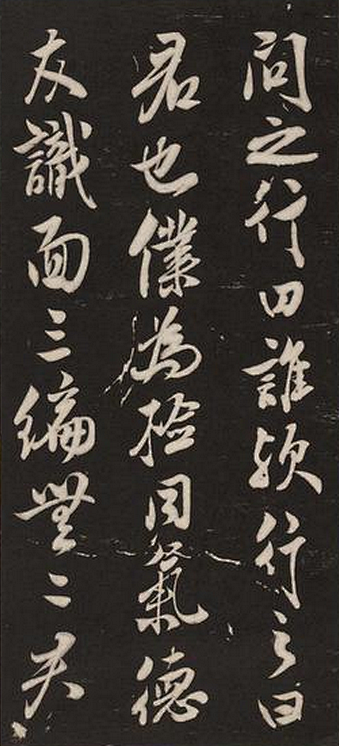 問之行誰欤行之曰
君也僕為撿同氣德
友識面三編無二夫